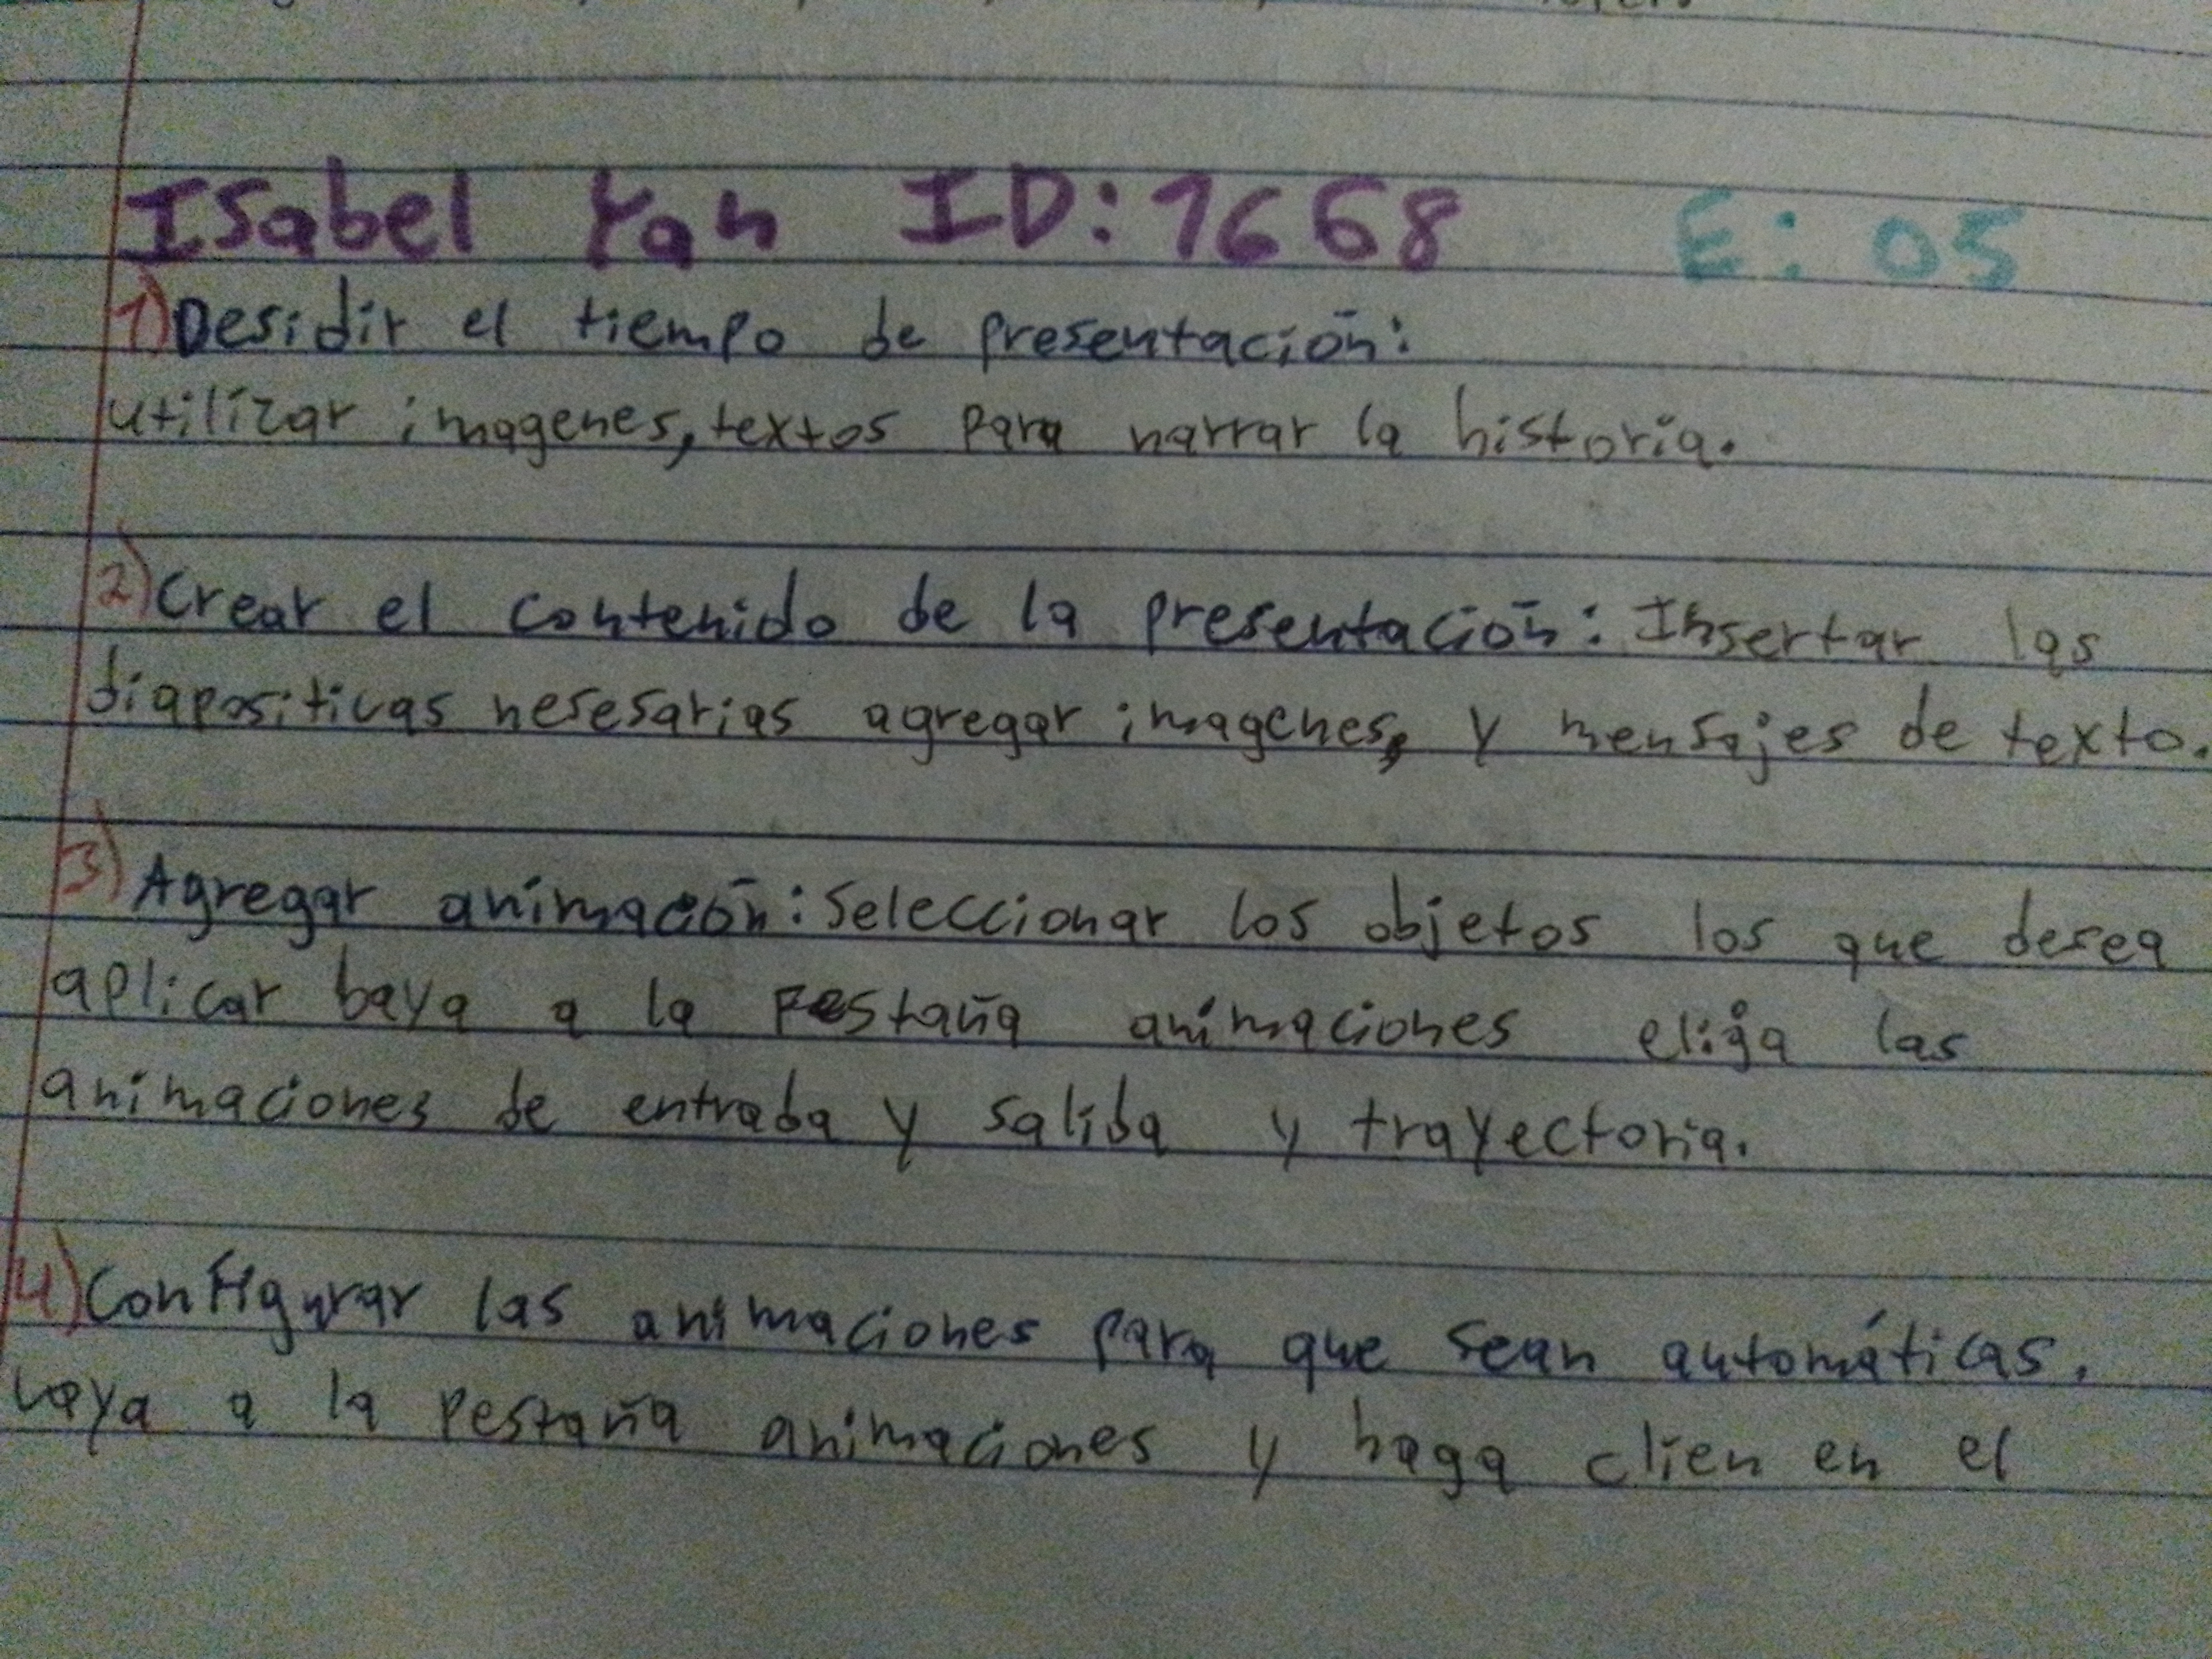 Isabel Yan ID: 1668 E: 05
1) Desidir el tiempo de presentación:
utilizar imagenes, textos para narrar la historia.
2) Crear el contenido de la presentación: Insertar las
diapositivas nesesarias agregar imagenes, y mensajes de texto.
3) Agregar animación: Seleccionar los objetos los que desea
aplicar baya a la Pestaña animaciones elija las
animaciones de entrada y salida y trayectoria.
4) Configurar las animaciones para que sean automáticas.
vaya a la pestaña animaciones y haga clien en el